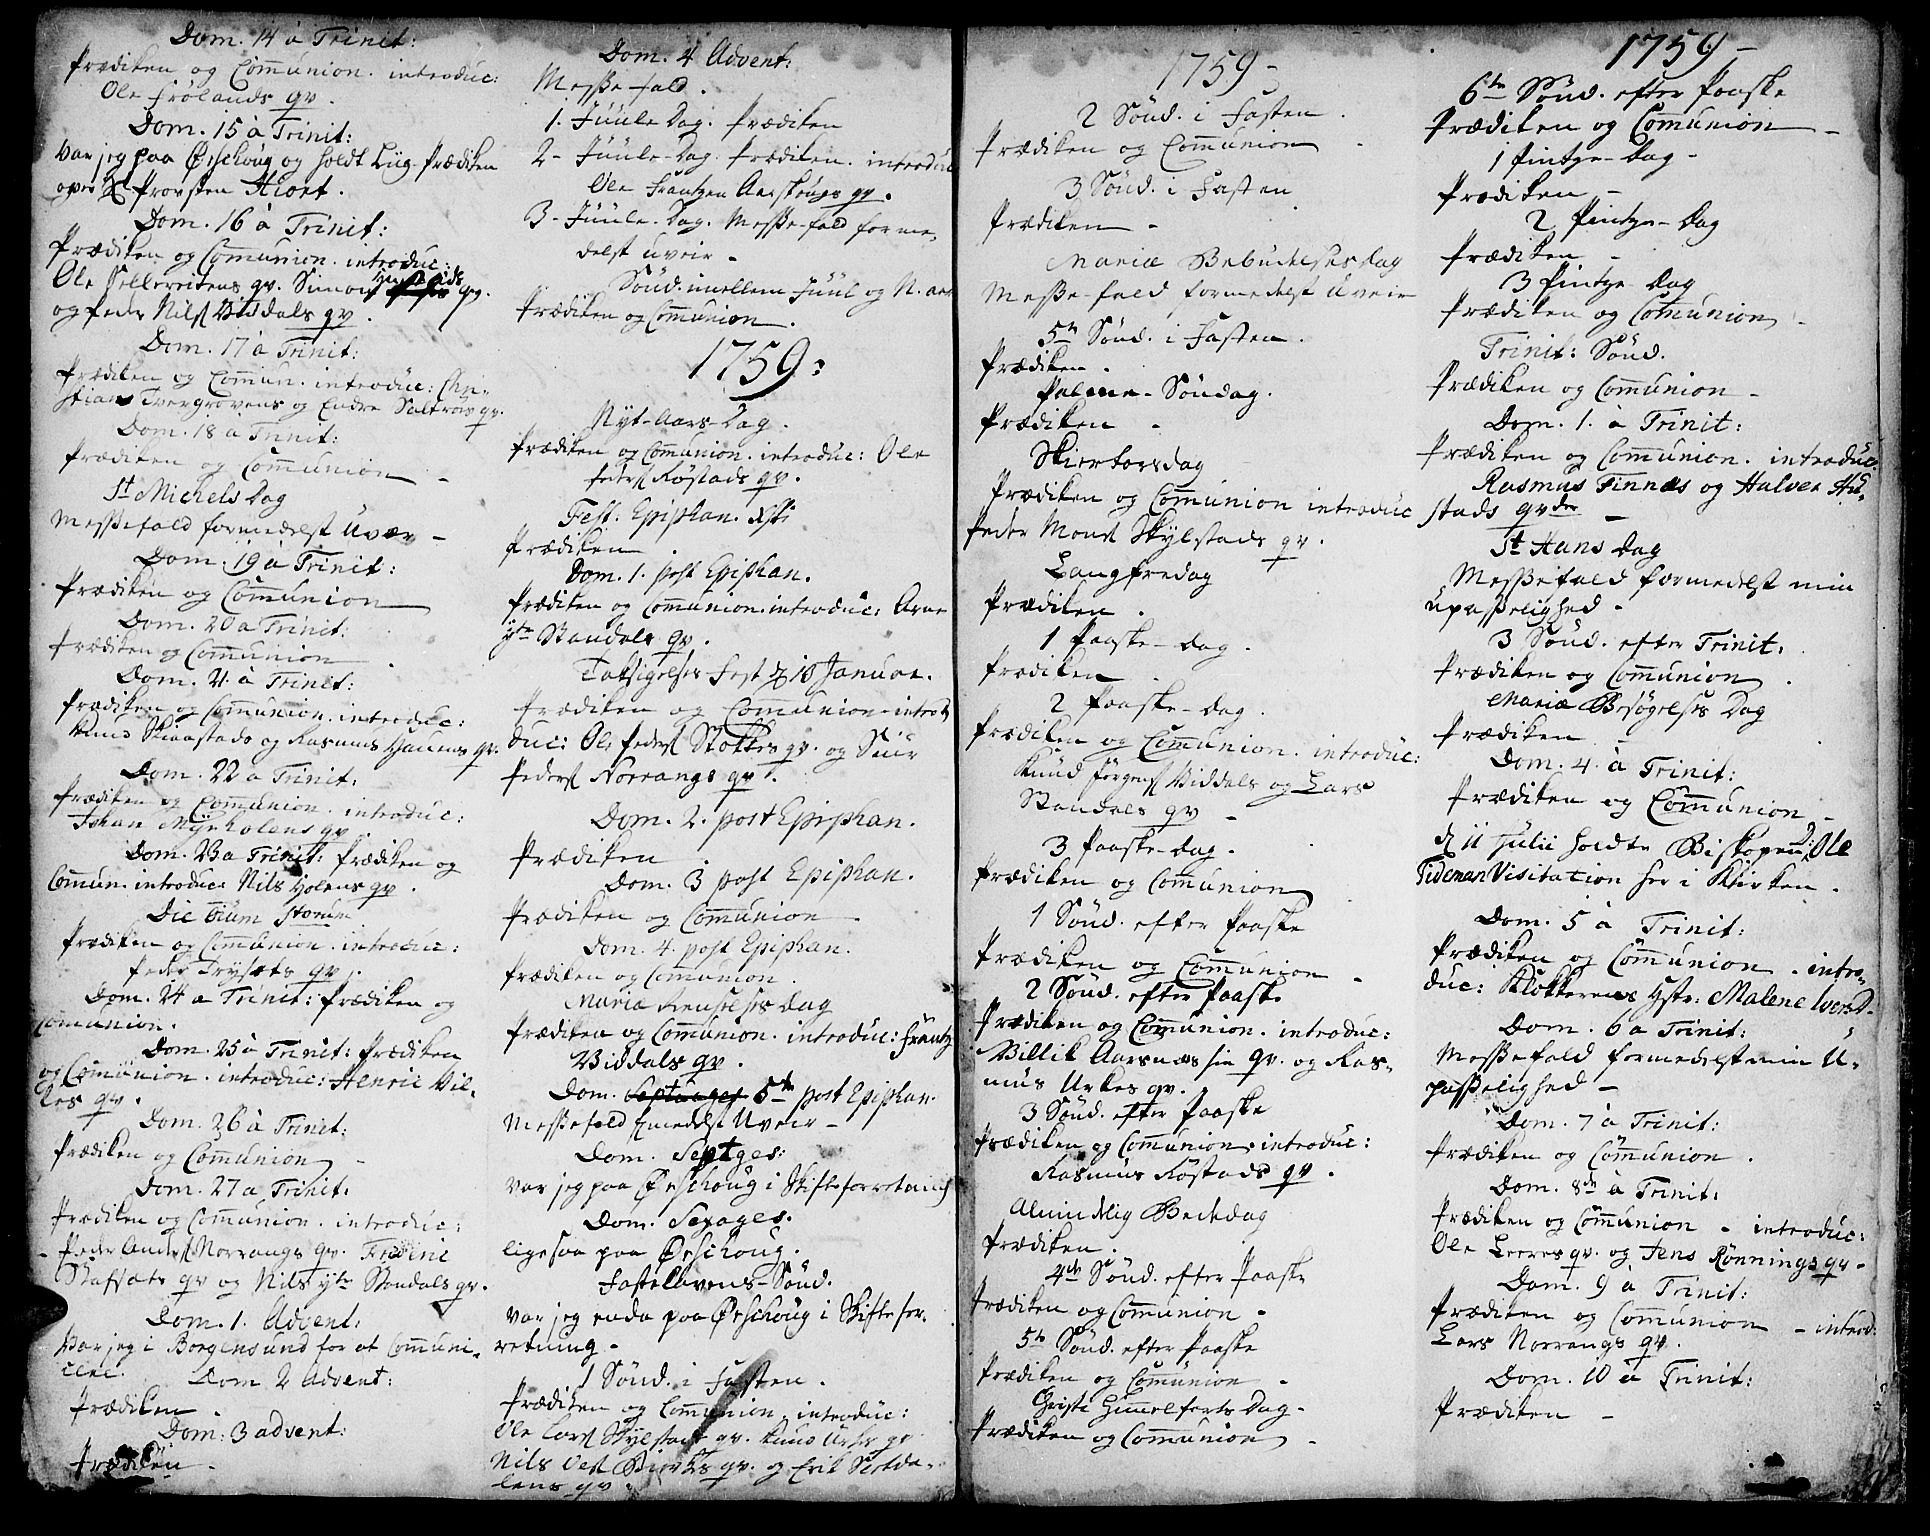 Dom. 14 a Trinit:
Prædiken og Communion. introduc:
Ole Frølands qv.
Dom. 15 à Trinit:
Var jeg paa Ørschoug og holdt Liig-Prædiken
over Hr Provsten Hiort.
Dom. 16 à Trinit:
Prædiken og Communion. introduc:
Ole qv. Simon qv.
og Peder Nils Viddals qv.
Dom. 17 à Trinit:
Prædiken og Commun. introduc: Chri-
stian Tvergrovens og Endre Sætrøs qv.
Dom. 18 a Trinit:
Prædiken og Communion -
St Michels Dag
Messefald formedelst Uvær -
Dom. 19 à Trinit:
Prædiken og Communion
Dom. 20 a Trinit:
Prædiken og Communion.
Dom. 21 à Trinit:
Prædiken og Communion. introduc:
Knud Skaastads og Rasmus Haums qv.
Dom. 22 a Trinit:
Prædiken og Communion. introduc:
Johan Myrholens qv.
Dom. 23 a Trinit: Prædiken og
Commun. introduc: Nils Holens qv.
Die Omnium Storum
Prædiken og Communion. introduc:
Peder Trysæts qv.
Dom. 24 a Trinit: Prædiken og
Communion.
Dom. 25 à Trinit: Prædiken
og Communion. introduc: Henric Vil-
kes qv.
Dom. 26 à Trinit:
Prædiken og Communion -
Dom. 27 a Trinit:
Prædiken og Communion. introduc:
Peder Anders Norrangs qv. Frideric
Stafsæts qv og Nils ytr Standals qv.
Dom. 1. Advent:
Var jeg i Borgensund for at Communi-
cere.
Dom 2 Advent:
Prædiken.
Dom: 3 advent:
Prædiken -
Dom. 4 Advent:
Messefald.
1. Juule Dag. Prædiken
2- Juule-Dag. Prædiken. introduc
Ole Frantzen Aarskougs qv.
3- Juule-Dag. Messe-fald forme-
delst uveir -
Sønd. imellem Juul og N. aar
Prædiken og Communion.
1759:
Nyt-Aars-Dag.
Prædiken og Communion. introduc: Ole
Peders Røstads qv.
Fest. Epiphan. Xsti
Prædiken.
Dom. 1. post Epiphan.
Prædiken og Communion. introduc: Arne
ytr Standals qv.
Taksigelses Fest d 18 Januar.
Prædiken og Communion - intro
duc: Ole Peders Stokkes qv. og Siur
Peders Norrangs qv.
Dom. 2. post Epiphan.
Prædiken
Dom. 3 post Epiphan.
Prædiken og Communion.
Dom. 4. post Epiphan.
Prædiken og Communion.
Mariæ Renselses Dag
Prædiken og Communion. introduc: Frantz
Viddals qv.
Dom. Septuages 5te post Epiphan.
Messefald formedelst Uveir -
Dom. Septges:
var jeg paa Ørschoug i Skifteforretning
Dom. Sexages.
ligesaa paa Ørschoug.
Fastelavens-Sønd.
var jeg enda paa Ørschoug i Skiftefor-
retning -
1 Sønd. i Fasten.
Prædiken og Communion. introduc:
Ole Lars Skylstads qv. Knud Urkes qv
Nils Ols Biørkes qv. og Erik Sætda-
lens qv.
1759 -
2 Sønd. i Fasten.
Prædiken og Communion -
3 Sønd. i Fasten
Prædiken -
Mariæ Bebudelses dag
Messe-fald formedelst Uveir
5te Sønd. i Fasten.
Prædiken.
Palme-Søndag.
Prædiken -
Skiertorsdag
Prædiken og Communion introduc
Peder Mons Skylstads qv.
Langfredag
Prædiken.
1 Paaske-dag.
Prædiken.
2 Paaske-dag.
Prædiken og Communion. introduc:
Knud Jørgens Viddals og Lars
Standals qv -
3 Paaske-dag.
Prædiken og Communion
1 Sønd. efter Paaske
Prædiken og Communion -
2 Sønd. efter Paaske
Prædiken og Communion. introduc:
Villik Aarsnæs sin qv. og Ras-
mus Urkes qv.
3 Sønd. efter Paaske
Prædiken og Communion. introduc:
Rasmus Røstads qv.
Almindelig Bededag
Prædiken.
4de Sønd. efter Paaske
Prædiken og Communion -
5te Sønd. efter Paaske
Prædiken og Communion -
Christi Himmelfarts Dag -
Prædiken og Communion -
1759 -
6te Sønd. efter Paaske
Prædiken og Communion -
1 Pintze-Dag -
Prædiken -
2 Pintze-Dag
Prædiken -
3 Pintze-Dag
Prædiken og Communion -
Trinit: Sønd.
Prædiken og Communion -
Dom. 1. à Trinit:
Prædiken og Communion. introduc:
Rasmus Finnæs og Halver Hu-
stads qvdr -
St Hans Dag
Messefald formedelst min
upasselighed -
3 Sønd. efter Trinit.
Prædiken og Communion.
Mariæ Besøgelses Dag
Prædiken -
Dom. 4. à Trinit:
Prædiken og Communion -
d 11 Julii holdte Biskopen D: Ole
Tideman Visitation her i Kirken.
Dom. 5 à Trinit:
Prædiken og Communion. intro-
duc: Klokkerens Hstr: Malene Iversd.
Dom. 6 a Trinit:
Messefald formedelst min U-
passelighed -
Dom. 7 à Trinit:
Prædiken og Communion.
Dom. 8de à Trinit:
Prædiken og Communion - introduc:
Ole Leeres qv. og Jens Rønnings qv -
Dom. 9 à Trinit:
Prædiken og Communion - introd:
Lars Norrangs qv.
Dom. 10 à Trinit:
Prædiken -